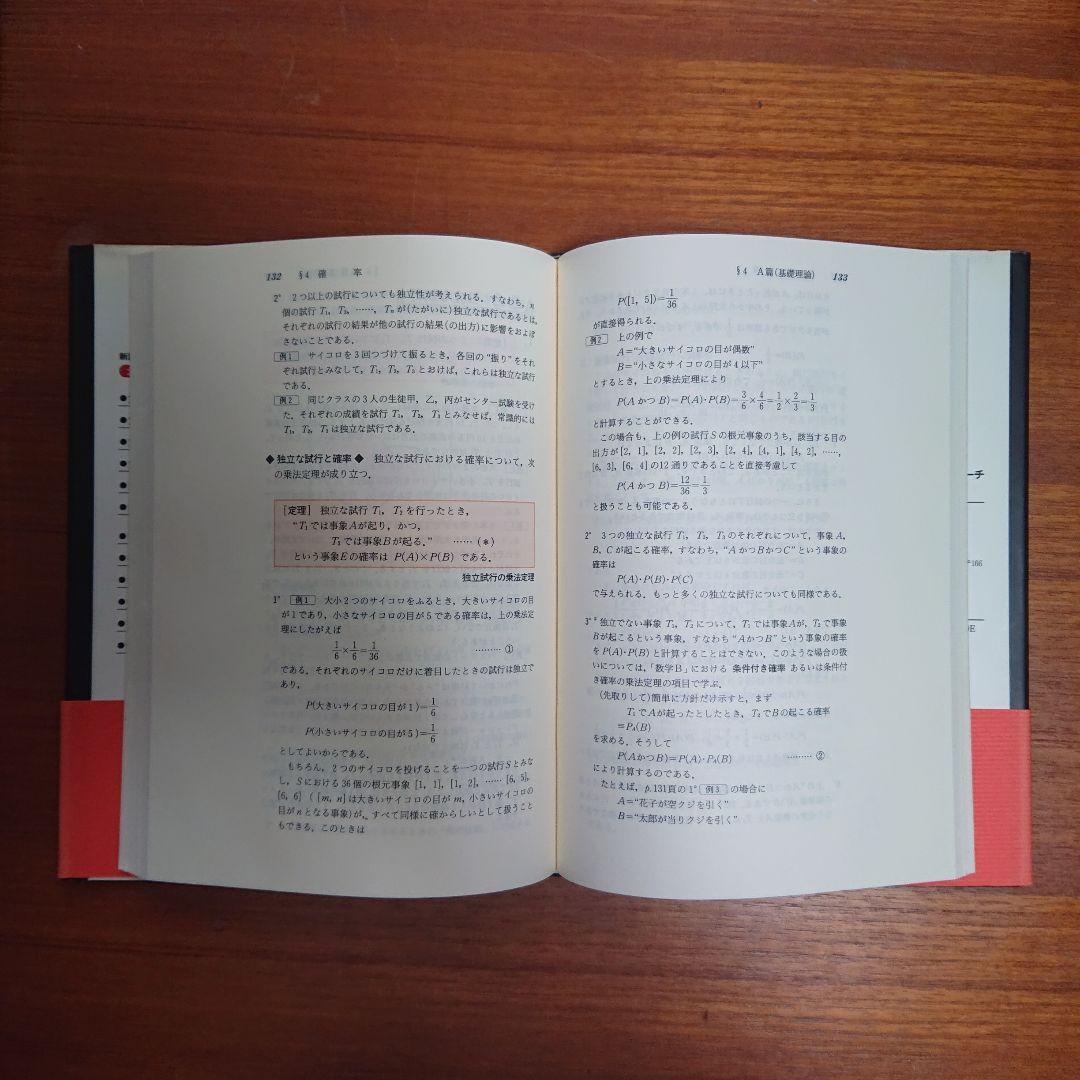 132 §4 確 率
2° 2つ以上の試行についても独立性が考えられる．すなわち，n
個の試行 T₁, T₂, ……, Tₙ が(たがいに)独立な試行であるとは，
それぞれの試行の結果が他の試行の結果(の出方)に影響をおよぼ
さないことである．
例1 サイコロを3回つづけて振るとき，各回の“振り”をそれ
ぞれ試行とみなして，T₁, T₂, T₃ とおけば，これらは独立な試行
である．
例2 同じクラスの3人の生徒甲，乙，丙がセンター試験を受け
た．それぞれの成績を試行 T₁, T₂, T₃ とみなせば，常識的には
T₁, T₂, T₃ は独立な試行である．
◆独立な試行と確率◆ 独立な試行における確率について，次
の乗法定理が成り立つ．
[定理] 独立な試行 T₁, T₂ を行ったとき，
“T₁ では事象Aが起り，かつ，
T₂ では事象Bが起る．” ……(＊)
という事象Eの確率は P(A)×P(B) である．
独立試行の乗法定理
1° 例1 大小2つのサイコロをふるとき，大きいサイコロの目
が1であり，小さなサイコロの目が5である確率は，上の乗法定
理にしたがえば
1/6×1/6=1/36 ……… ①
である．それぞれのサイコロだけに着目したときの試行は独立で
あり，
P(大きいサイコロの目が1)=1/6
P(小さいサイコロの目が5)=1/6
としてよいからである．
もちろん，2つのサイコロを投げることを一つの試行Sとみな
し，Sにおける36個の根元事象 [1, 1], [1, 2], …… [6, 5],
[6, 6] ([m, n]は大きいサイコロの目が m, 小さいサイコロの
目が n となる事象)が，すべて同様に確からしいとして扱うこと
もできる．このときは
§4 A篇(基礎理論) 133
P([1, 5])=1/36
が直接得られる．
例2 上の例で
A=“大きいサイコロの目が偶数”
B=“小さなサイコロの目が4以下”
とするとき，上の乗法定理により
P(AかつB)=P(A)・P(B)=3/6×4/6=1/2×2/3=1/3
と計算することができる．
この場合も，上の例の試行Sの根元事象のうち，該当する目の
出方が [2, 1], [2, 2], [2, 3], [2, 4], [4, 1], [4, 2], ……,
[6, 3], [6, 4] の12通りであることを直接考慮して
P(AかつB)=12/36=1/3
と扱うことも可能である．
2° 3つの独立な試行 T₁, T₂, T₃ のそれぞれについて，事象A,
B, C が起こる確率，すなわち，“AかつBかつC”という事象の
確率は
P(A)・P(B)・P(C)
で与えられる．もっと多くの独立な試行についても同様である．
3°＊ 独立でない事象 T₁, T₂ について，T₁ では事象Aが，T₂ で事象
Bが起こるという事象，すなわち“AかつB”という事象の確率
を P(A)・P(B) と計算することはできない．このような場合の扱
いについては，「数学B」における 条件付き確率 あるいは条件付
き確率の乗法定理の項目で学ぶ．
(先取りして)簡単に方針だけ示すと，まず
T₁ でAが起ったとしたとき，T₂ でBの起こる確率
=P_A(B)
を求める．そうして
P(AかつB)=P(A)・P_A(B) ……… ②
により計算するのである．
たとえば，p.131頁の 1° 例3 の場合に
A=“花子が空クジを引く”
B=“太郎が当りクジを引く”
ーチ